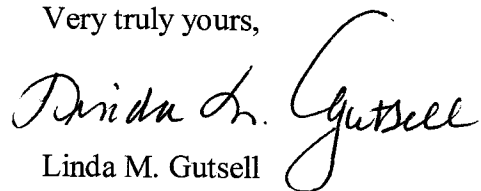 Very truly yours,
Linda M. Gutsell
Linda M. Gutsell